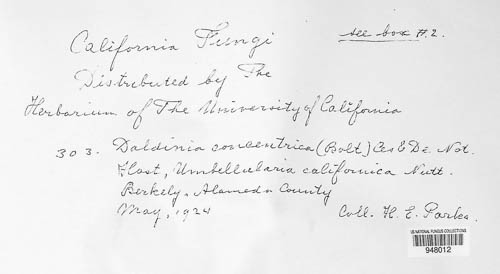 California Fungi
see box #.2.
Distributed by The
Herbarium of The University of California
303. Daldinia concentrica (Bolt.) Ces & De. Not.
Host, Umbellularia californica Nutt.
Berkely, Alameda County
May, 1924
Coll. H. E. Parks.
US NATIONAL FUNGUS COLLECTIONS
948012